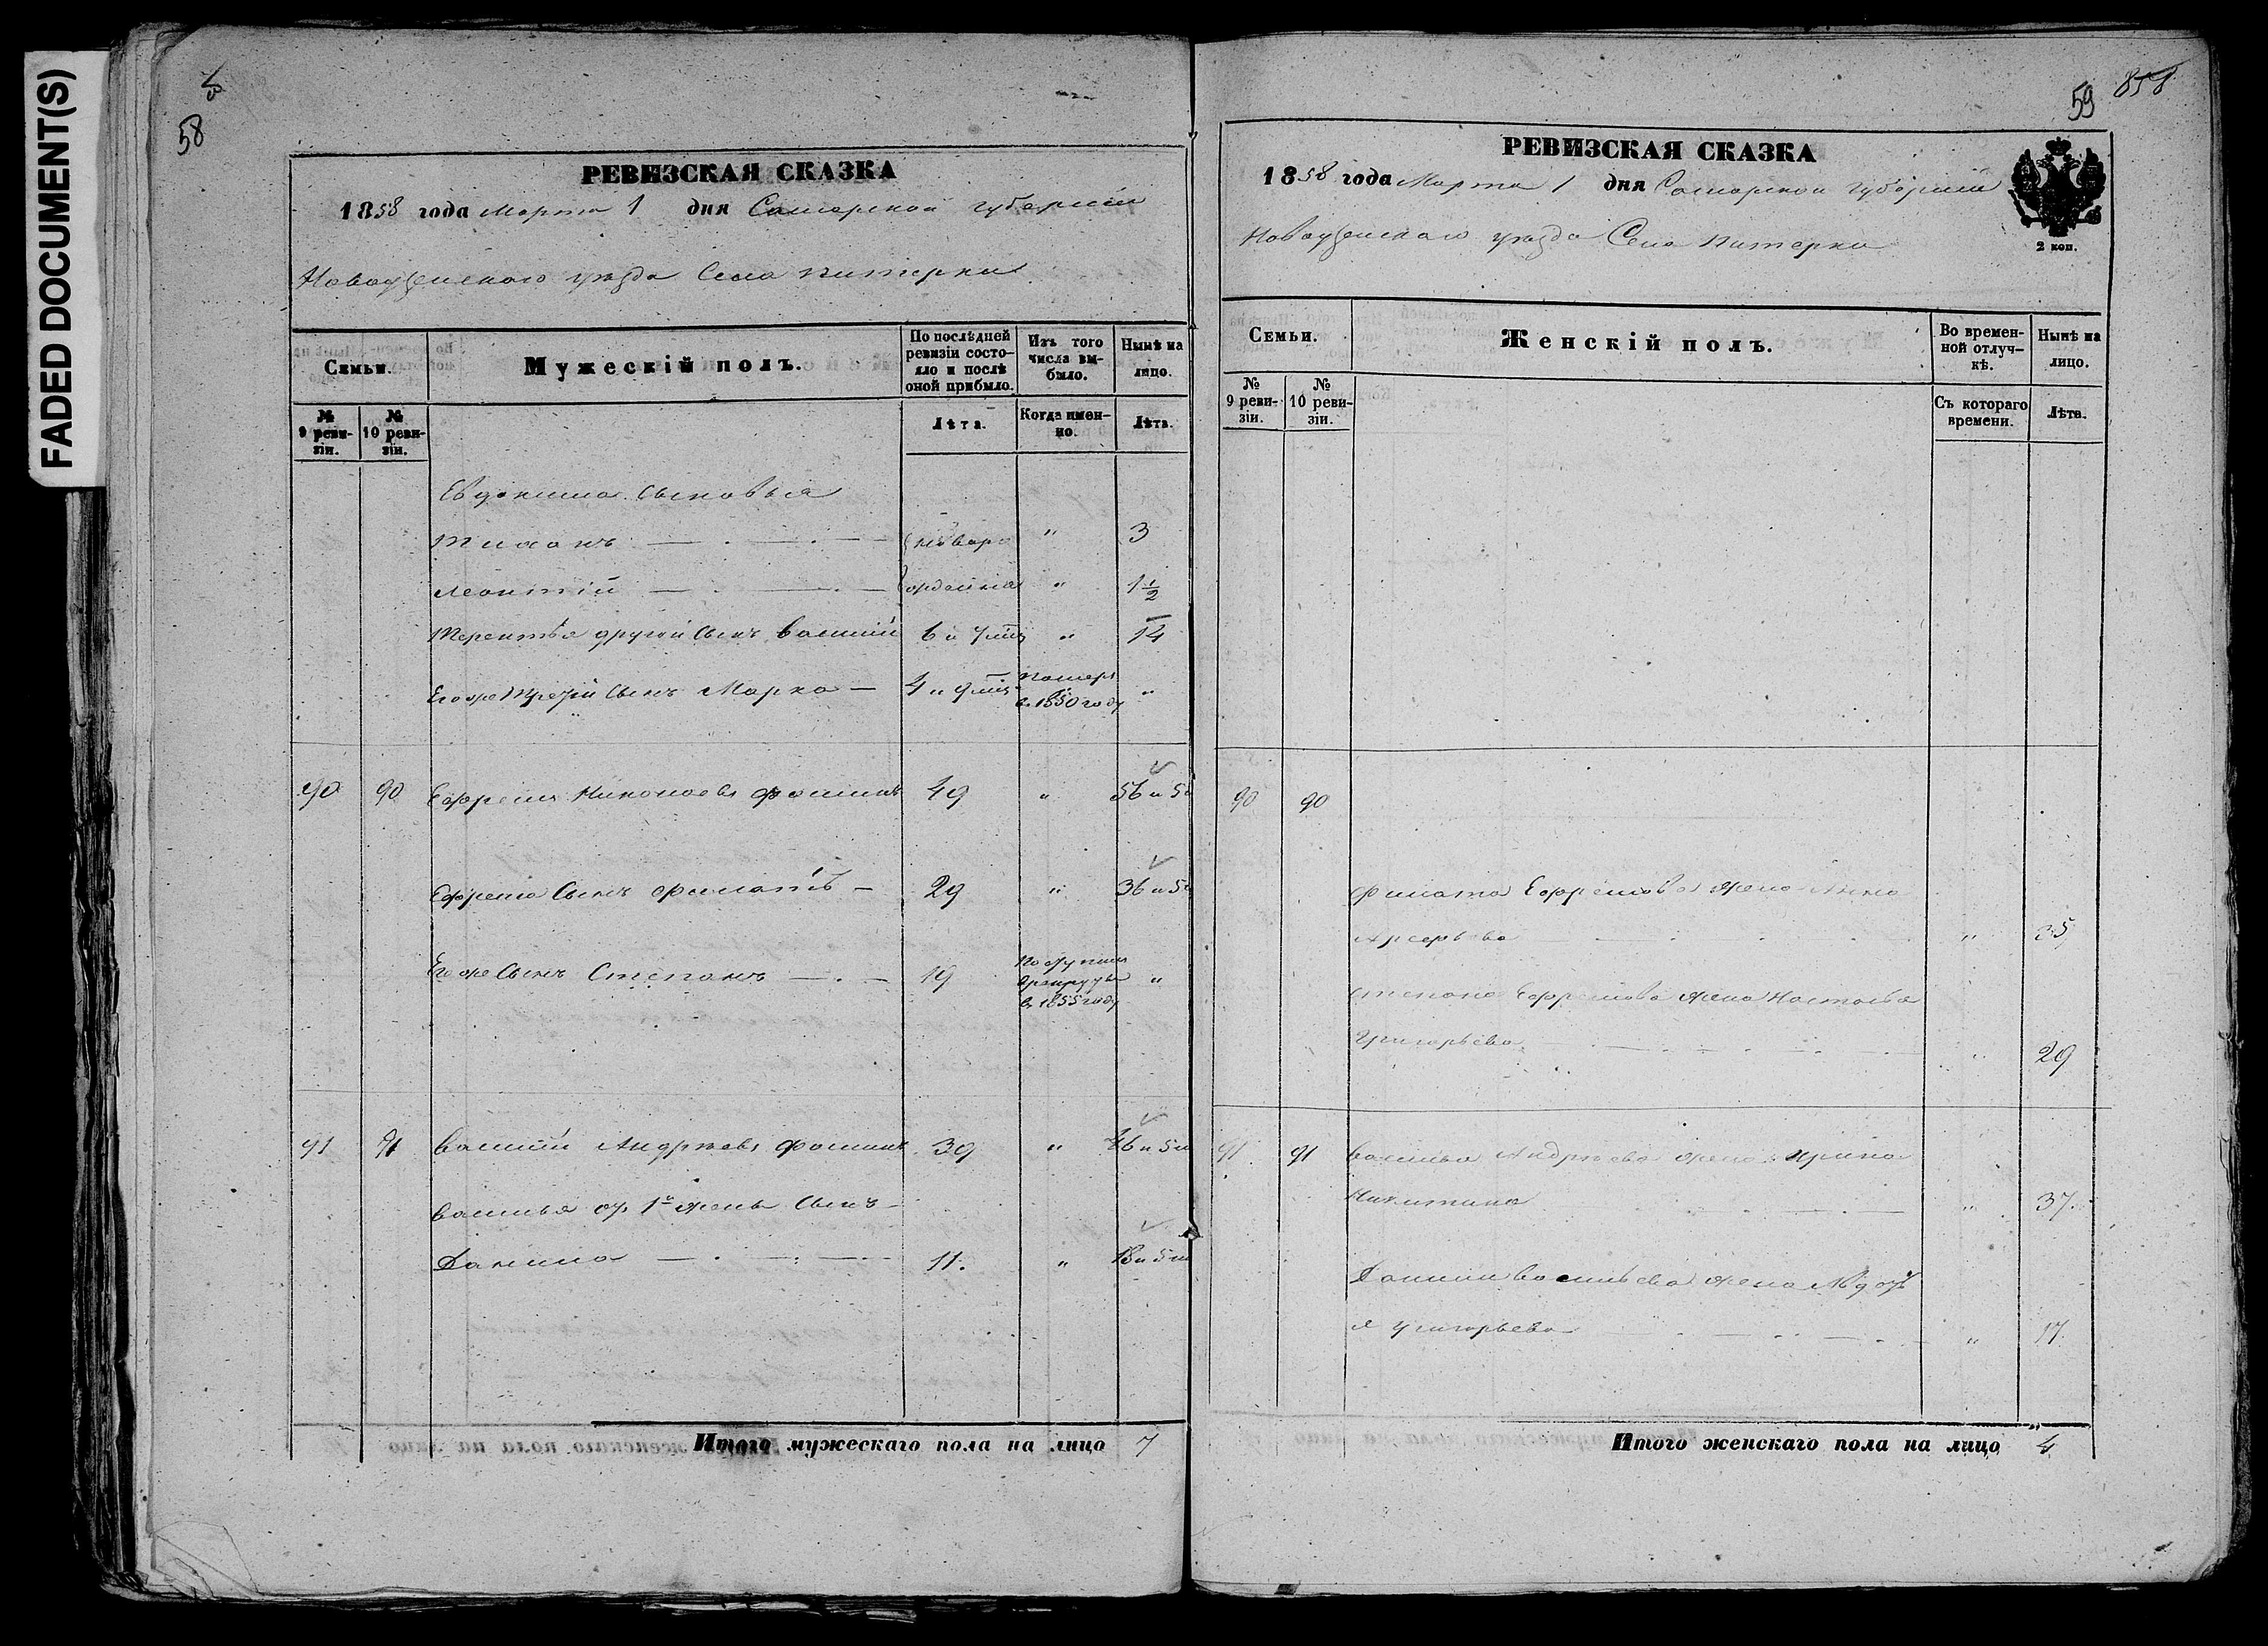 FADED DOCUMENT(S)
58
РЕВИЗСКАЯ СКАЗКА
1858 года Марта 1 дня Самарской губернии
Новоузенскаго уѣзда Села Питерки
Семьи.
Мужескій полъ.
По послѣдней ревизіи состояло и послѣ оной прибыло.
Изъ того числа выбыло.
Нынѣ на лицо.
№ 9 ревизіи.
№ 10 ревизіи.
Лѣта.
Когда именно.
Лѣта.
Евдокима сыновья
Тихонъ " 3
Леонтій " 1 1/2
Терентья другой сынъ Василій 6 и 7 " 14
Егоже третій сынъ Марко 4 и 9 помер в 1850 году "
90 90 Ефремъ Никоновъ Фоминъ 49 " 56 и 5
Ефрема сынъ Филатъ 29 " 36 и 5
Егоже сынъ Степанъ 19 Поступил в рекруты в 1855 году "
91 91 Василий Андреевъ Фоминъ 39 " 46 и 5 м
Василья от 1й жены сынъ
Данила 11. " 18 и 5 м
Итого мужескаго пола на лицо 7
59 858
РЕВИЗСКАЯ СКАЗКА
1858 года Марта 1 дня Самарской губернии
2 коп.
Новоузенскаго уѣзда Села Питерки
Семьи.
Женскій полъ.
Во временной отлучкѣ.
Нынѣ на лицо.
№ 9 ревизіи.
№ 10 ревизіи.
Съ котораго времени.
Лѣта.
90 90
Филата Ефремова жена Анна
" 35
Степана Ефремова жена Настасья
Григорьева " 29
91 91 Василья Андреева жена Ирина
Никитина " 37
Данилы Васильева жена Авдоть
я Григорьева " 17.
Итого женскаго пола на лицо 4